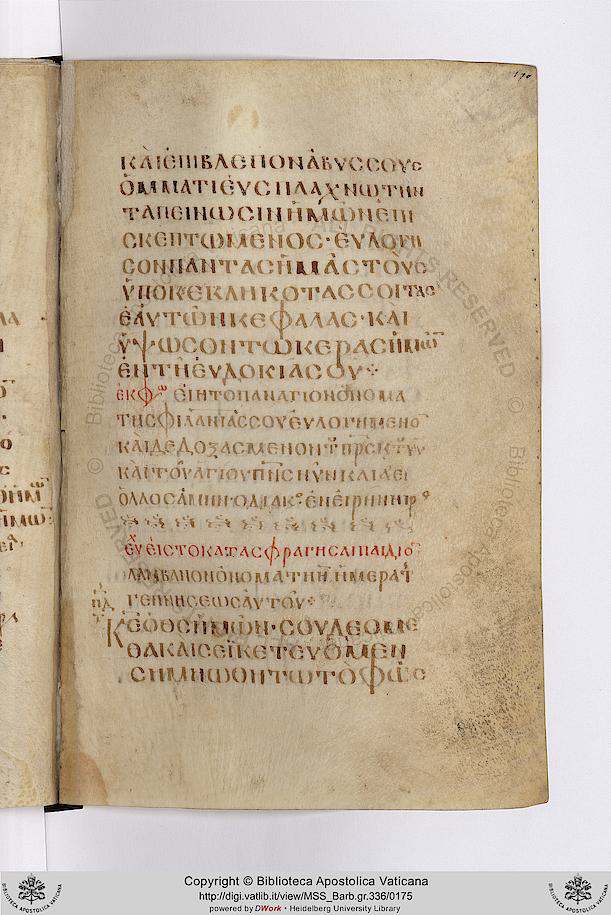 ΚΑΙ ΕΠΙΒΛΕΠΟΝ ΑΒΥССΟΥС
ΟΜΜΑΤΙ ΕΥСΠΛΑΧΝѠ ΤΗΝ
ΤΑΠΕΙΝѠСΙΝ ΗΜѠΝ ΕΠΙ
СΚΕΠΤѠΜΕΝΟС· ΕΥΛΟΓΗ
СΟΝ ΠΑΝΤΑС ΗΜΑС ΤΟΥС
ΥΠΟΚΕΚΛΗΚΟΤΑС СΟΙ ΤΑС
ΕΑΥΤѠΝ ΚΕΦΑΛΑС· ΚΑΙ
ΥΨѠСΟΝ ΤѠ ΚΕΡΑС ΗΜѠΝ
ΕΝ ΤΗ ΕΥΔΟΚΙΑ СΟΥ
ΕΚΦѠ ΕΙΗ ΤΟ ΠΑΝΑΓΙΟΝ ΟΝΟΜΑ
ΤΗС ΦΙΛΑΝΙΑС СΟΥ ΕΥΛΟΓΗΜΕΝΟ
ΚΑΙ ΔΕΔΟΞΑСΜΕΝΟΝ Τ ΠΡС Κ Τ ΥΥ
ΚΑΙ ΤΟΥ ΑΓΙΟΥ ΠΝС ΝΥΝ ΚΑΙ ΑΕΙ
Ο ΛΑΟС ΑΜΗΝ Ο ΔΙΑΚ ΕΝ ΕΙΡΗΝΗ ΠΡ
ΕΥ ΕΙС ΤΟ ΚΑΤΑСΦΡΑΓΗСΑΙ ΠΑΙΔΙΟ
ΛΑΜΒΑΝΟΝ ΟΝΟΜΑ ΤΗ Η ΗΜΕΡΑ Τ
ΓΕΝΝΗСΕѠС ΑΥΤΟΥ
ΚΕ Ο ΘС ΗΜѠΝ· СΟΥ ΔΕΟΜΕ
ΘΑ ΚΑΙ СΕ ΙΚΕΤΕΥΟΜΕΝ
СΗΜΗѠΘΗΤѠ ΤΟ ΦѠС
Copyright © Biblioteca Apostolica Vaticana
http://digi.vatlib.it/view/MSS_Barb.gr.336/0175
powered by DWork · Heidelberg University Library